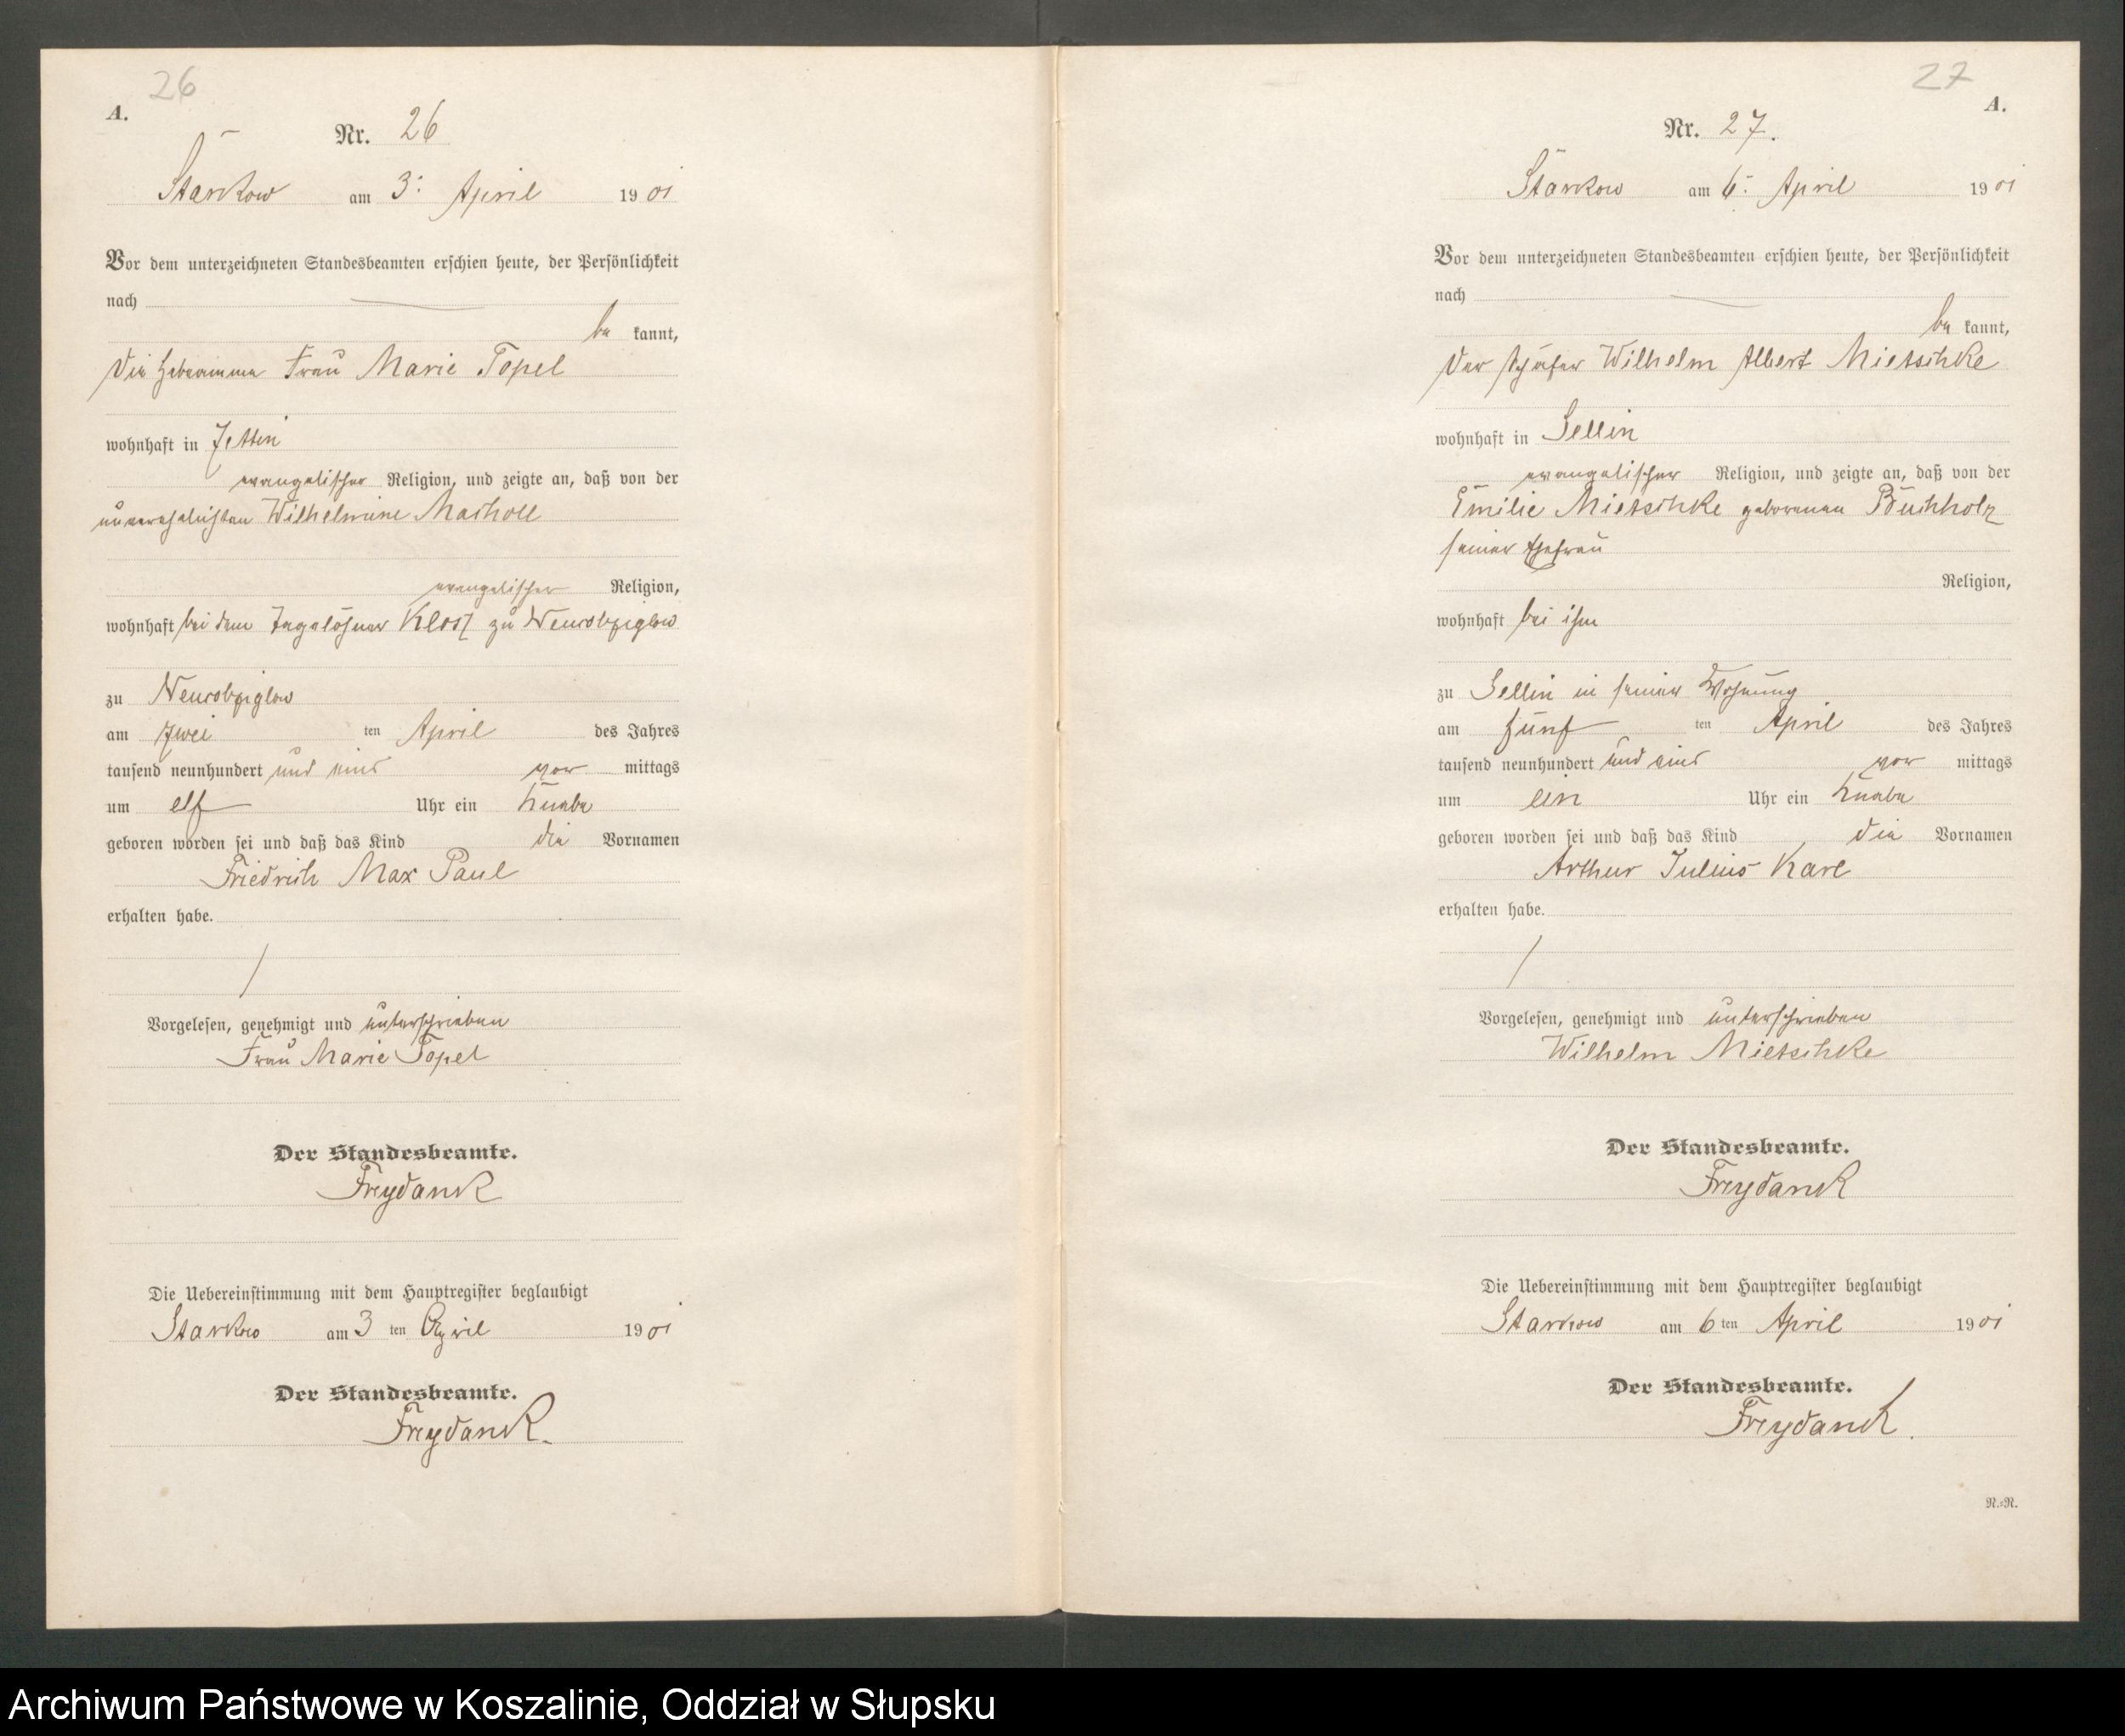 26
A.
Nr. 26
Starkow am 3: April 1901
Vor dem unterzeichneten Standesbeamten erschien heute, der Persönlichkeit
nach
be kannt,
die Hebeamme Frau Marie Topel
wohnhaft in Jettin
evangelischer Religion, und zeigte an, daß von der
unverehelichten Wilhelmine Macholl
evangelischer Religion,
wohnhaft bei dem Tagelöhner Klotz zu Neurobziglow
zu Neurobziglow
am zwei ten April des Jahres
tausend neunhundert und eins vor mittags
um elf Uhr ein Knabe
geboren worden sei und daß das Kind die Vornamen
Friedrich Max Paul
erhalten habe.
Vorgelesen, genehmigt und unterschrieben
Frau Marie Topel
Der Standesbeamte.
Freydanck
Die Uebereinstimmung mit dem Hauptregister beglaubigt
Starkow am 3 ten April 1901
Der Standesbeamte.
Freydanck.
27
A.
Nr. 27.
Starkow am 6: April 1901
Vor dem unterzeichneten Standesbeamten erschien heute, der Persönlichkeit
nach
be kannt,
der Schäfer Wilhelm Albert Mietschke
wohnhaft in Sellin
evangelischer Religion, und zeigte an, daß von der
Emilie Mietschke geborenen Buchholz
seiner Ehefrau
Religion,
wohnhaft bei ihm
zu Sellin in seiner Wohnung
am fünf ten April des Jahres
tausend neunhundert und eins vor mittags
um ein Uhr ein Knabe
geboren worden sei und daß das Kind die Vornamen
Arthur Julius Karl
erhalten habe.
Vorgelesen, genehmigt und unterschrieben
Wilhelm Mietschke
Der Standesbeamte.
Freydanck
Die Uebereinstimmung mit dem Hauptregister beglaubigt
Starkow am 6 ten April 1901
Der Standesbeamte.
Freydanck.
N.=N.
Archiwum Państwowe w Koszalinie, Oddział w Słupsku